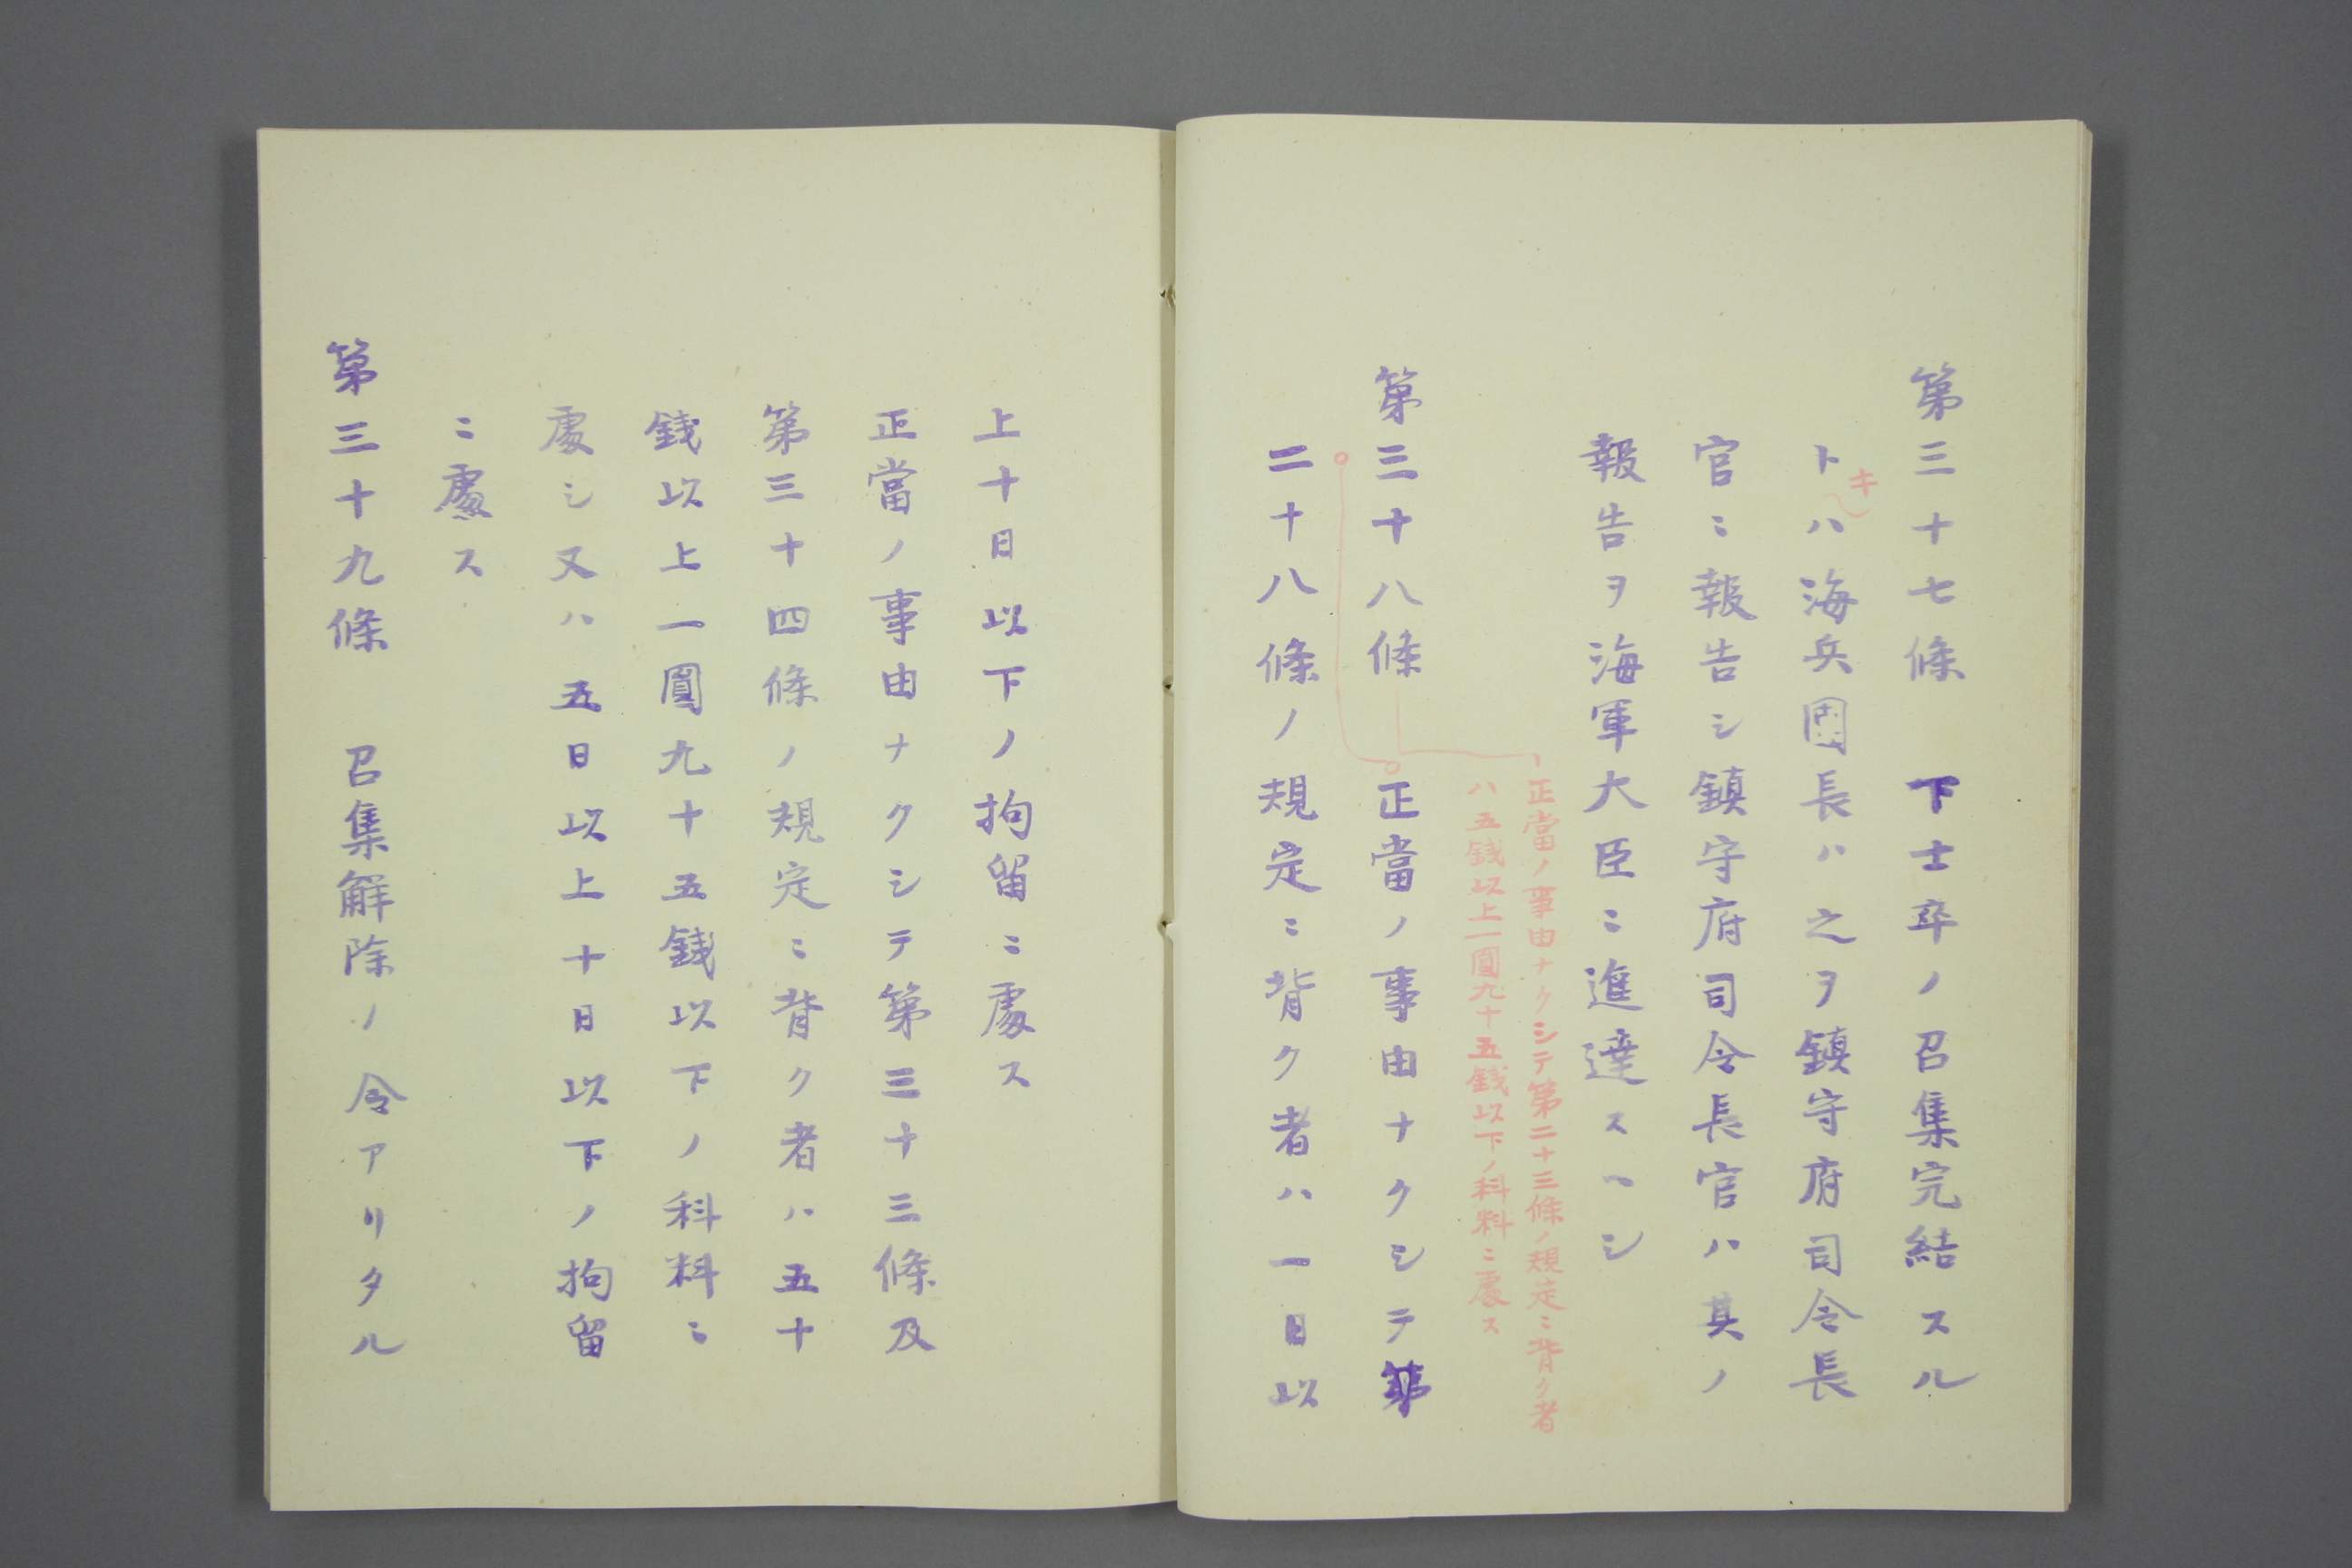 第三十七條　下士卒ノ召集完結スル
トキハ海兵團長ハ之ヲ鎮守府司令長
官ニ報告シ鎮守府司令長官ハ其ノ
報告ヲ海軍大臣ニ進達スヘシ
正當ノ事由ナクシテ第二十三條ノ規定ニ背ク者
ハ五錢以上一圓九十五錢以下ノ科料ニ處ス
第三十八條　正當ノ事由ナクシテ第
二十八條ノ規定ニ背ク者ハ一日以
上十日以下ノ拘留ニ處ス
正當ノ事由ナクシテ第三十三條及
第三十四條ノ規定ニ背ク者ハ五十
錢以上一圓九十五錢以下ノ科料ニ
處シ又ハ五日以上十日以下ノ拘留
ニ處ス
第三十九條　召集解除ノ令アリタル